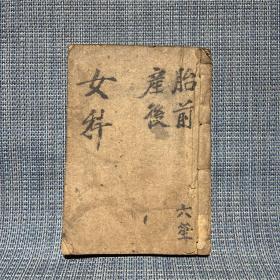 胎前
産後
女科
六堂